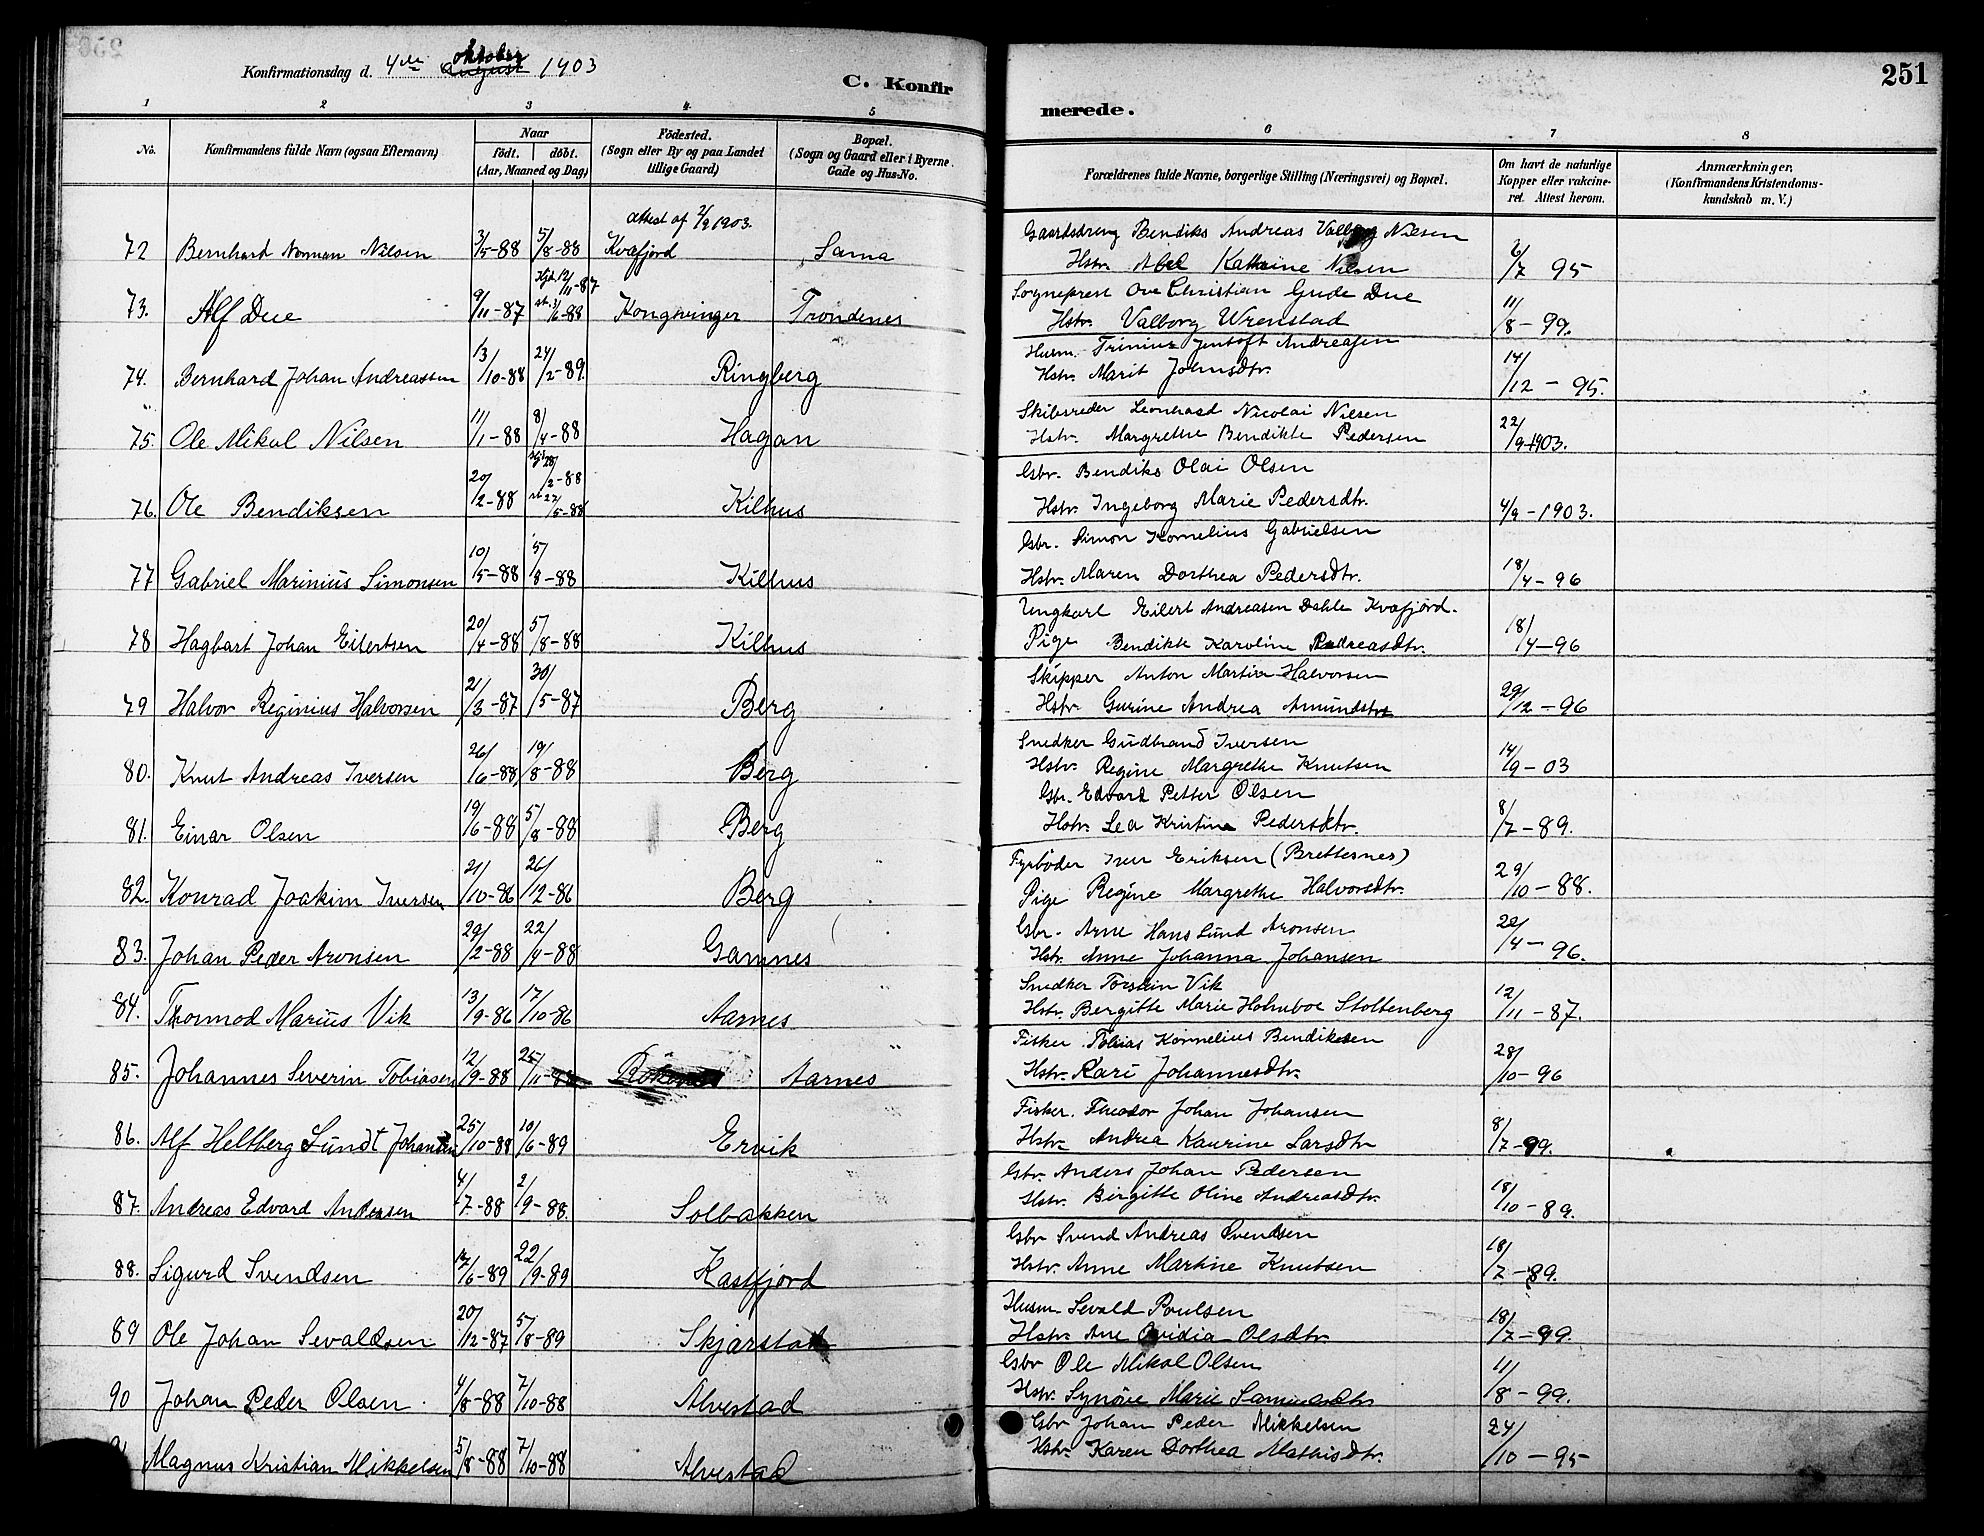 Konfirmationsdag d. 4de august oktober 1903
C. Konfir
merede.
251
1 2 3 4 5 6 7 8
No.
Konfirmandens fulde Navn (ogsaa Efternavn)
Naar
født. døbt.
(Aar, Maaned og Dag)
Fødested.
(Sogn eller By og paa Landet
tillige Gaard)
Bopæl.
(Sogn og Gaard eller i Byerne
Gade og Hus-No.
Forældrenes fulde Navne, borgerlige Stilling (Næringsvei) og Bopæl.
Om havt de naturlige
Kopper eller vakcine-
ret. Attest herom.
Anmærkninger,
(Konfirmandens Kristendoms-
kundskab m. V.)
attest af 2/9 1903.
Gaardsdreng Bendiks Andreas Nilsen
72 Bernhard Norman Nilsen 3/5-88 5/8-88 Kvæfjord Sama
Hstr. Abel Katrine Nilsen 6/7 95
Hjd. 12/11-87
Sogneprest Ove Christian Gude Due
73. Alf Due 9/11-87 st. 1/6-88 Kongsvinger Trondenes
Hstr. Valborg Wrenstad 11/8-99.
Husm. Trinius Jentoft Andreasen
74. Bernhard Johan Andreassen 13/10-88 24/2-89. Ringberg
Hstr. Marit Johnsdtr. 14/12-95.
Skibsreder Leonhard Nicolai Nilsen
75. Ole Mikal Nilsen 11/1-88 8/4-88 Hagan
Hstr. Margrethe Bendikte Pedersen 22/9-1903.
Hjd. 28/2-88
Gbr. Bendiks Olai Olsen
76. Ole Bendiksen 20/2-88 st. 27/5-88 Kilhus
Hstr. Ingeborg Marie Pedersdtr. 4/9-1903.
Gbr. Simon Kornelius Gabrielsen
77 Gabriel Marinius Simonsen 10/5-88 5/8-88 Kilhus
Hstr. Maren Dorthea Pedersdtr. 18/4-96
Ungkarl Eilert Andreasen Dahle Kvæfjord.
78 Hagbart Johan Eilertsen 20/4-88 5/8-88 Kilhus
Pige Bendikte Karoline Pedreasdtr. 18/4-96
Skipper Anton Martin Halvorsen
79 Halvor Reginius Halvorsen 21/3-87 30/5-87 Berg
Hstr. Gurine Andrea Amundstr 29/12-96
Snedker Gudbrand Iversen
80. Knut Andreas Iversen 26/6-88 19/8-88 Berg
Hstr. Regine Margrethe Knutsen 14/9-03
Gbr. Edvard Petter Olsen
81. Einar Olsen 19/6-88 5/8-88 Berg
Hstr. Lea Kristine Pedersdtr. 8/7-89.
Fyrbøder Iver Eriksen (Brettesnes)
82. Konrad Joakim Iversen 21/10-86 26/12-86 Berg
Pige Regine Margrethe Halvorsdtr. 29/10-88.
Gbr. Arne Hans Lund Aronsen
83. Johan Peder Aronsen 29/2-88 22/4-88 Gamnes
Hstr. Anne Johanna Johansen 22/4-96.
Snedker Torstein Vik
84. Thormod Marius Vik 13/9-86 17/10-86 Aarnes
Hstr. Bergitte Marie Holmboe Stoltenberg 12/11-87.
Fisker Tobias Kornelius Bendiksen
85. Johannes Severin Tobiasen 12/9-88 25/11-88 Aarnes
Hstr. Kari Johannesdtr. 28/10-96
Fisker. Theodor Johan Johansen
86. Alf Heltberg Lundt Johansen 25/10-88 10/6-89 Ervik
Hstr. Andrea Kaurine Larsdtr 8/7-99.
Gbr. Anders Johan Pedersen
87. Andreas Edvard Andersen 4/7-88 2/9-88. Solbakken
Hstr. Birgitte Oline Andreasdtr. 18/10-89.
Gbr Svend Andreas Svendsen
88. Sigurd Svendsen 17/6-89 22/9-89 Kasfjord
Hstr. Anne Martine Knutsen 18/7-89.
Husm. Sevald Poulsen
89 Ole Johan Sevaldsen 20/12-87 5/8-89 Skjærstad
Hstr. Ane Ovidia Olsdtr 18/7-99.
Gbr Ole Mikal Olsen
90 Johan Peder Olsen 4/8-88 7/10-88 Alvestad
Hstr. Synøve Marie 11/8-99.
Gbr Johan Peder Mikkelsen
Magnus Kristian Mikkelsen 5/8-88 7/10-88 Alvestad
Hstr. Karen Dorthea Mathisdtr. 24/10-95